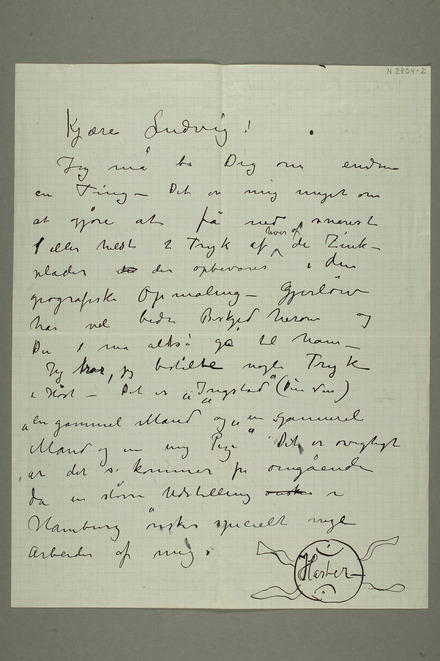 N 2804-2
Kjære Ludvig!
Jeg må be Dig om endnu
en Ting – Det er mig meget om
at gjøre at få ned snarest
1 eller helst 2 Tryk af hver af de Zink-
plader der opbevares i den
geografiske Opmåling – Gjerløw
har vel bedst Beskjed herom og
Du må altså gå til ham –
Jeg tror, jeg bestilte nogle Tryk
i Høst – Det er „Ingstad" (Din Ven)
„en gammel Mand og „en gammel
Mand og en ung Pige" Det er vigtigt
at det kommer på omgående
da en større Udstilling i
Hamburg ønsker specielt nogle
Arbeider af mig.
Haster